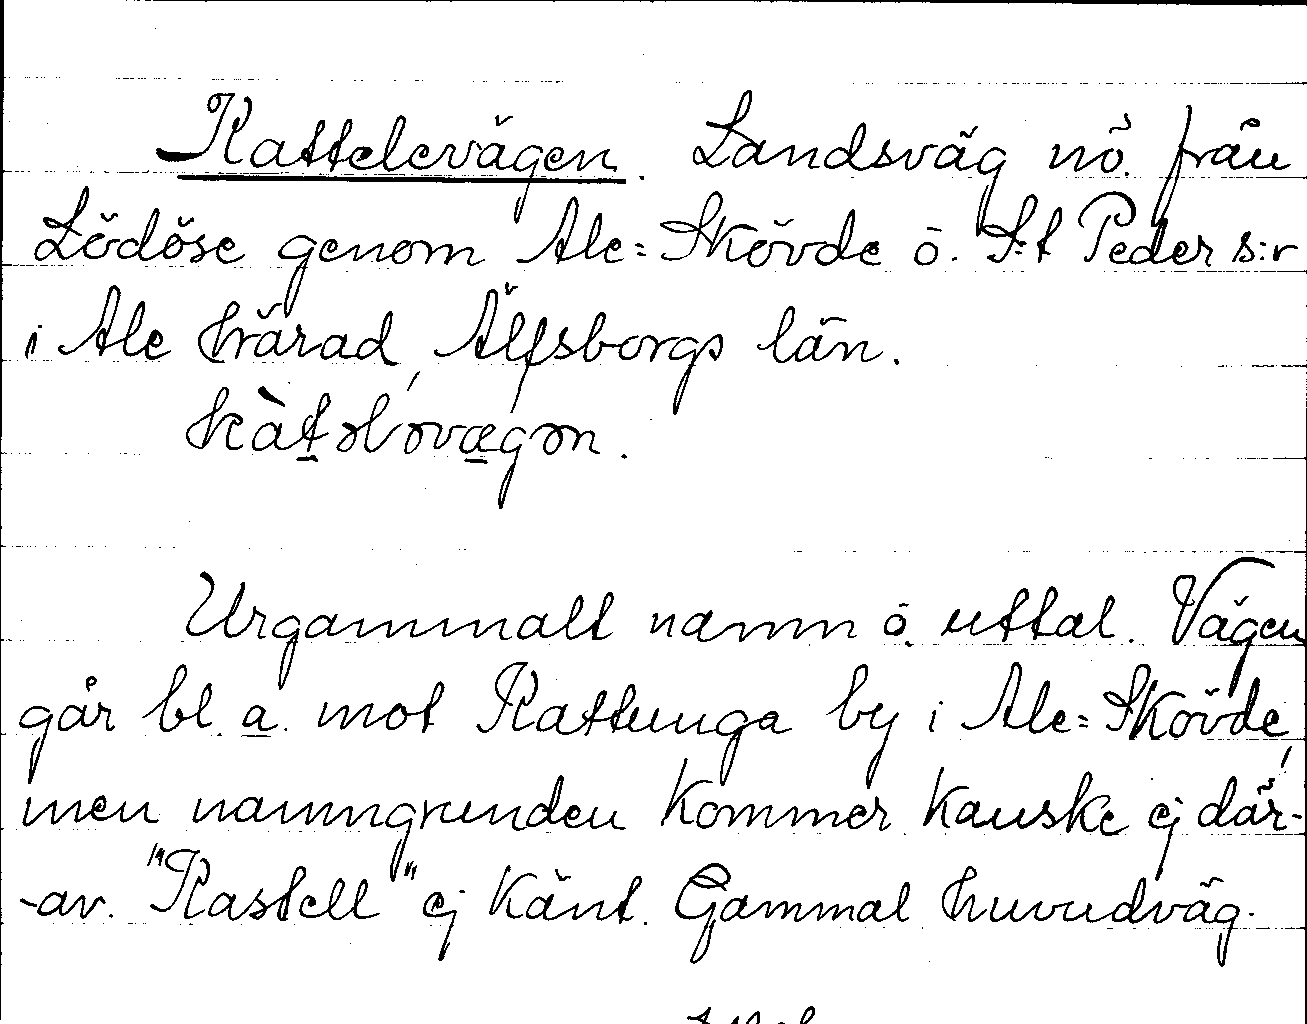 Kattelevägen. Landsväg nö. från
Lödöse genom Ale=Skövde o. S:t Peder s:r
i Ale härad, Älfsborgs län.
kàt̲ələvæ̲gən.
Urgammalt namn o. uttal. Vägen
går bl. a. mot Kattunga by i Ale=Skövde,
men namngrunden kommer kanske ej där-
-av. "Kastell" ej känt. Gammal huvudväg.